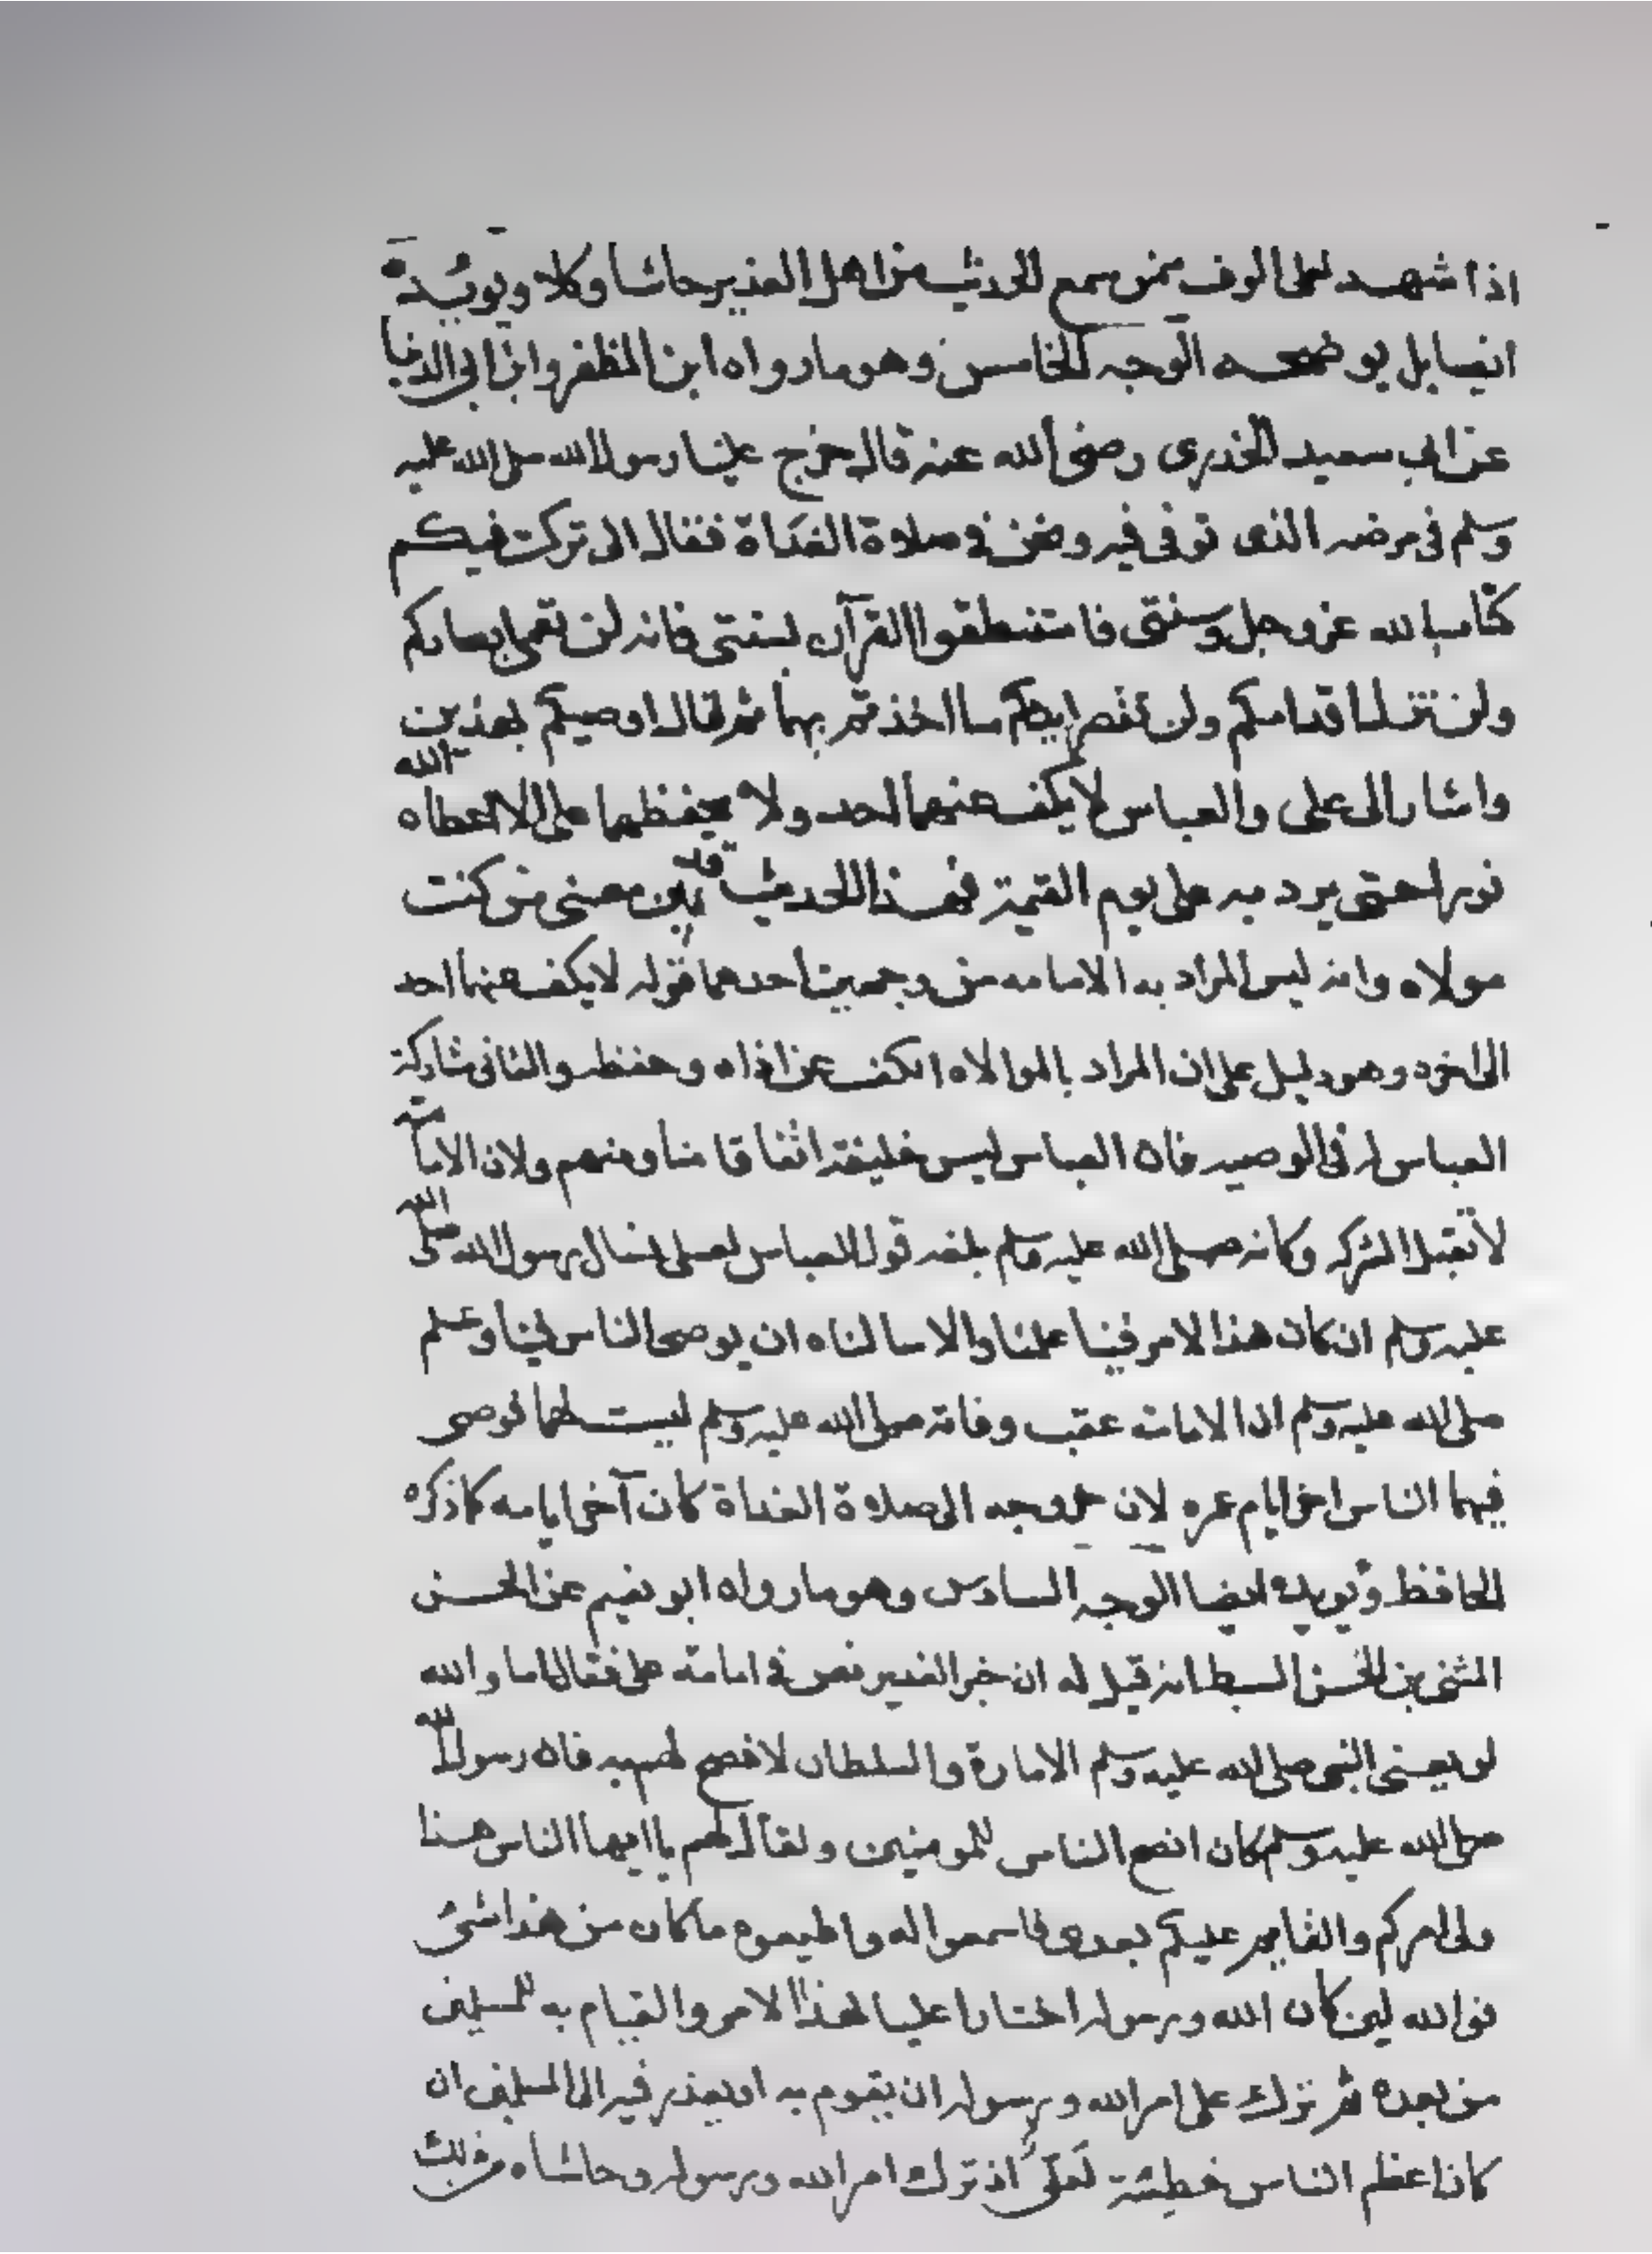 اذا شهد لعلى الوف ممن سمع الحديث من اهل الغدير حاشا وكلا ويويده
ايضا بل يوضحه الوجه الخامس وهو ما رواه ابن المظفر وابن ابى الدنيا
عن ابى سعيد الخدرى رضى الله عنه قال خرج علينا رسول الله صلى الله عليه
وسلم فى مرضه الذى توفى فيه ونحن فى صلاة الغداة فقال انى تركت فيكم
كتاب الله عز وجل وسنتى فاستنطقوا القرآن بسنتى فانه لن تعمى ابصاركم
ولن تزل اقدامكم ولن تقصر ايديكم ما اخذتم بهما ثم قال اوصيكم بهذين
واشار الى على والعباس لا يكف عنهما احد ولا يحفظهما على الا اعطاه الله
نورا حتى يرد به على يوم القيمة فهذا الحديث قد بين معنى من كنت
مولاه وانه ليس المراد به الامامه من وجهين احدهما قوله لا يكف عنهما احد
الى اخره وهو دليل على ان المراد بالموالاه الكف عن اذاه وحفظه والثانى مشاركة
العباس له فى الوصيه فان العباس ليس خليفة اتفاقا منا ومنهم ولان الامامة
لا تقبل الشركه وكانه صلى الله عليه وسلم بلغه قول العباس لعلى نسال رسول الله صلى الله
عليه وسلم ان كان هذا الامر فينا علمنا والا سالناه ان يوصى الناس فينا وعلم
صلى الله عليه وسلم ان الامامة عقب وفاته صلى الله عليه وسلم ليست لهما فوصى
فيهما الناس اخر ايام عمره لان خروجه الى صلاة الغداة كان آخر ايامه كما ذكره
الحافظ ويويده ايضا الوجه السادس وهو ما رواه ابو نعيم عن الحسن
المثنى بن الحسن السبط انه قيل له ان خبر الغدير نص فى امامة على فقال اما والله
لو يعنى النبى صلى الله عليه وسلم الامارة والسلطان لافصح لهم به فان رسول الله
صلى الله عليه وسلم كان انصح الناس للمومنين ولقال لهم يا ايها الناس هذا
ولى امركم والقايم عليكم بعدى فاسمعوا له واطيعوه ما كان من هذا شئ
فوالله لين كان الله ورسوله اختارا عليا لهذا الامر والقيام به للمسلمين
من بعده ثم ترك على امر الله ورسوله ان يقوم به او يعذر فيه الى المسلمين ان
كان اعظم الناس خطيئة لعلى اذ ترك امر الله ورسوله وحاشاه من ذلك